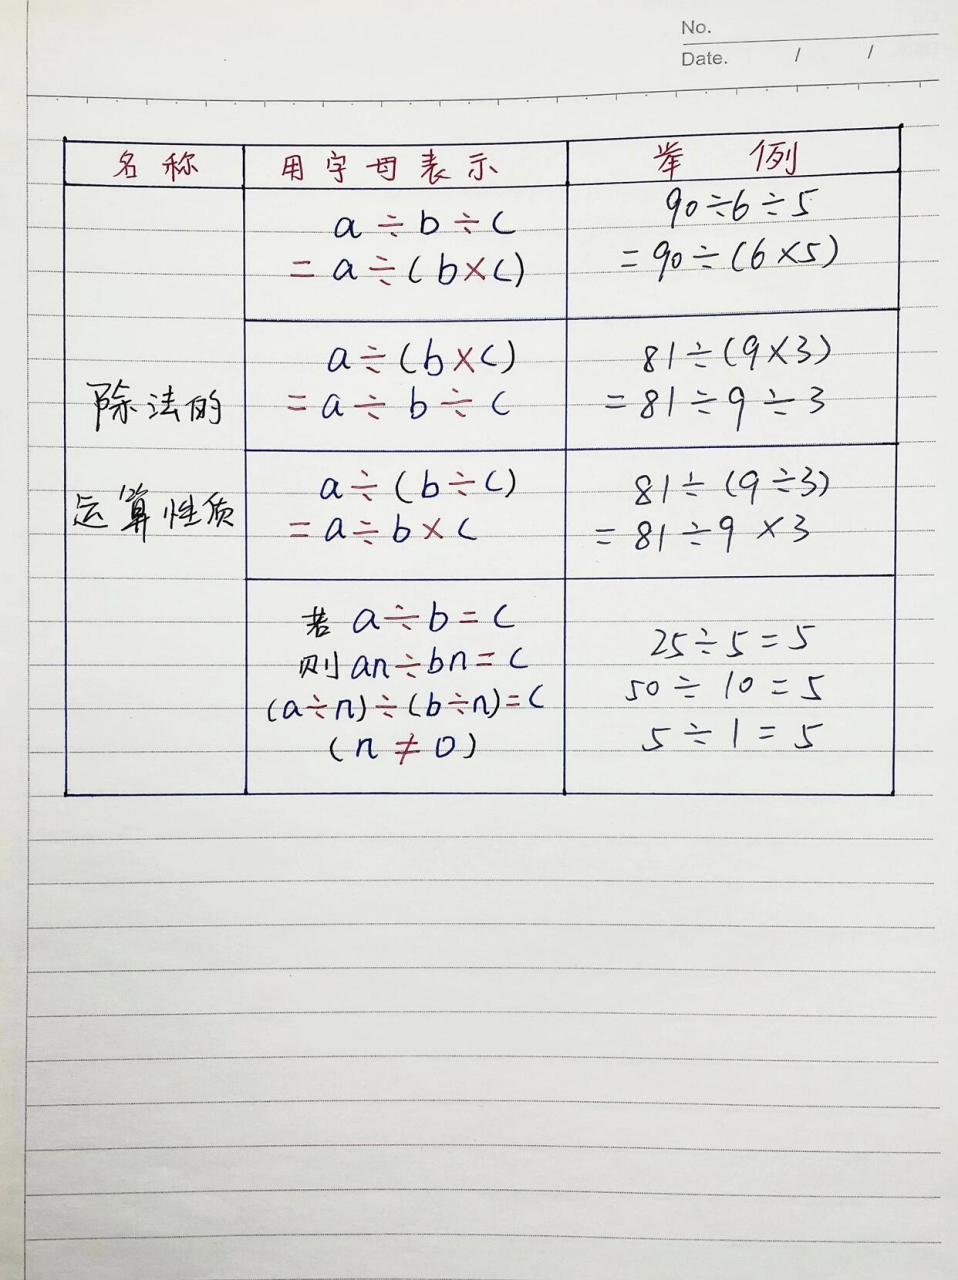 No.
Date. / /
名称 用字母表示 举例
除法的
运算性质
a÷b÷c
=a÷(b×c)
90÷6÷5
=90÷(6×5)
a÷(b×c)
=a÷b÷c
81÷(9×3)
=81÷9÷3
a÷(b÷c)
=a÷b×c
81÷(9÷3)
=81÷9×3
若a÷b=c
则an÷bn=c
(a÷n)÷(b÷n)=c
(n≠0)
25÷5=5
50÷10=5
5÷1=5